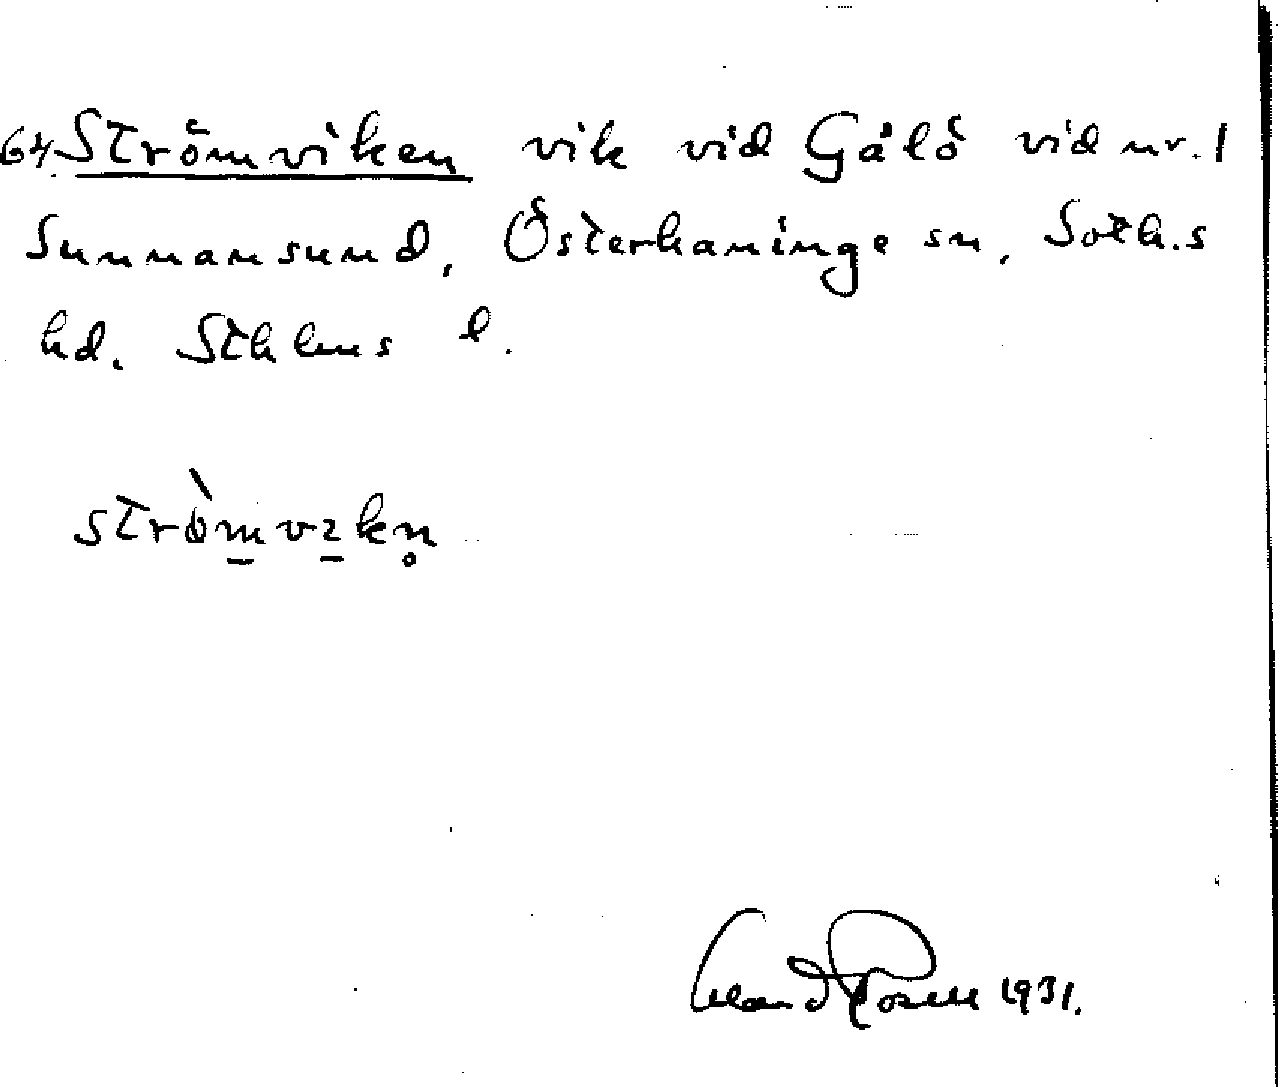 64. Strömviken vik vid Gålö vid nr. 1
Sunnansund, Österhaninge sn, Soth.s
hd. Sthlms l.
strò̀mvıkn̥
1931.